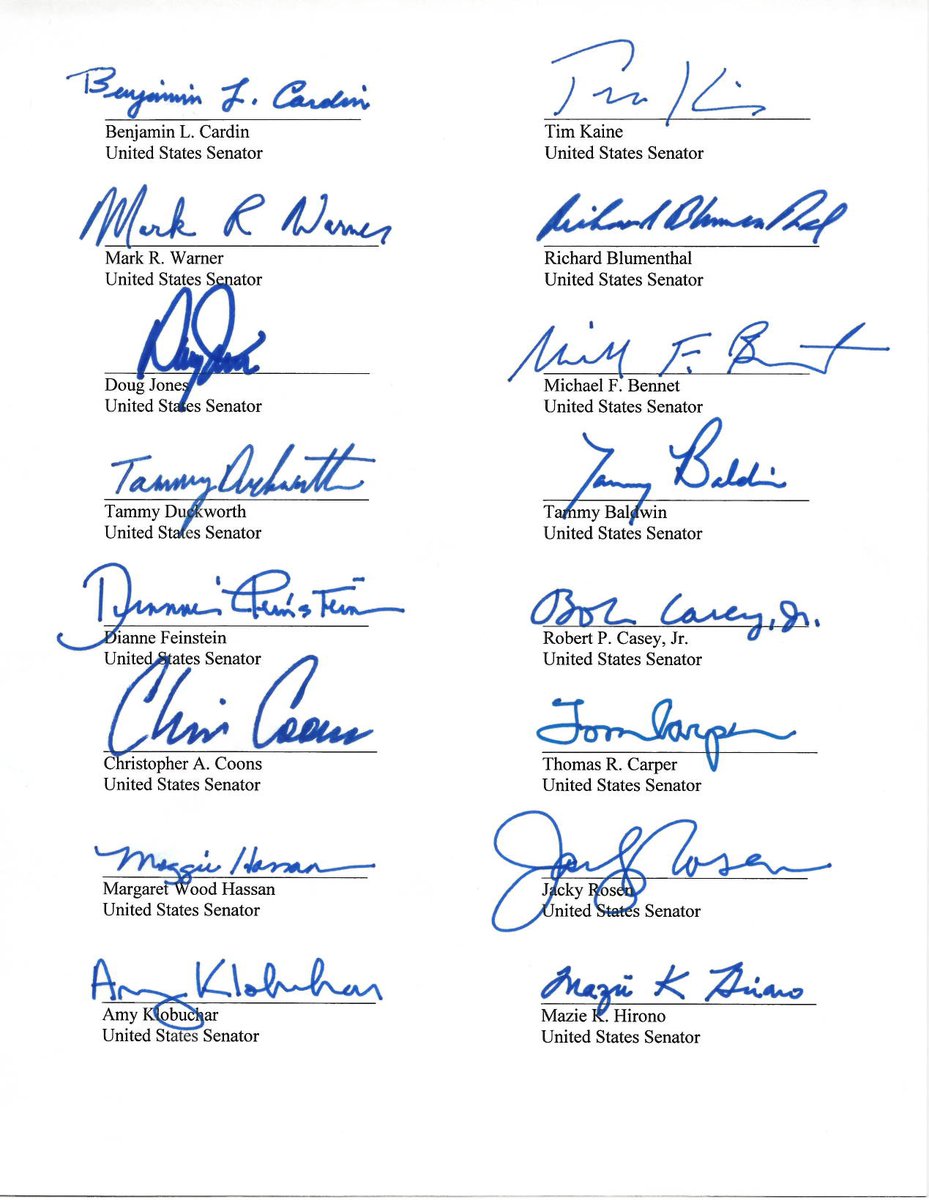 Benjamin L. Cardin
Benjamin L. Cardin
United States Senator
Tim Kaine
Tim Kaine
United States Senator
Mark R Warner
Mark R. Warner
United States Senator
Richard Blumenthal
Richard Blumenthal
United States Senator
Doug Jones
Doug Jones
United States Senator
Michael F. Bennet
Michael F. Bennet
United States Senator
Tammy Duckworth
Tammy Duckworth
United States Senator
Tammy Baldwin
Tammy Baldwin
United States Senator
Dianne Feinstein
Dianne Feinstein
United States Senator
Bob Casey, Jr.
Robert P. Casey, Jr.
United States Senator
Chris Coons
Christopher A. Coons
United States Senator
Tom Carper
Thomas R. Carper
United States Senator
Maggie Hassan
Margaret Wood Hassan
United States Senator
Jacky Rosen
Jacky Rosen
United States Senator
Amy Klobuchar
Amy Klobuchar
United States Senator
Mazie K Hirono
Mazie K. Hirono
United States Senator